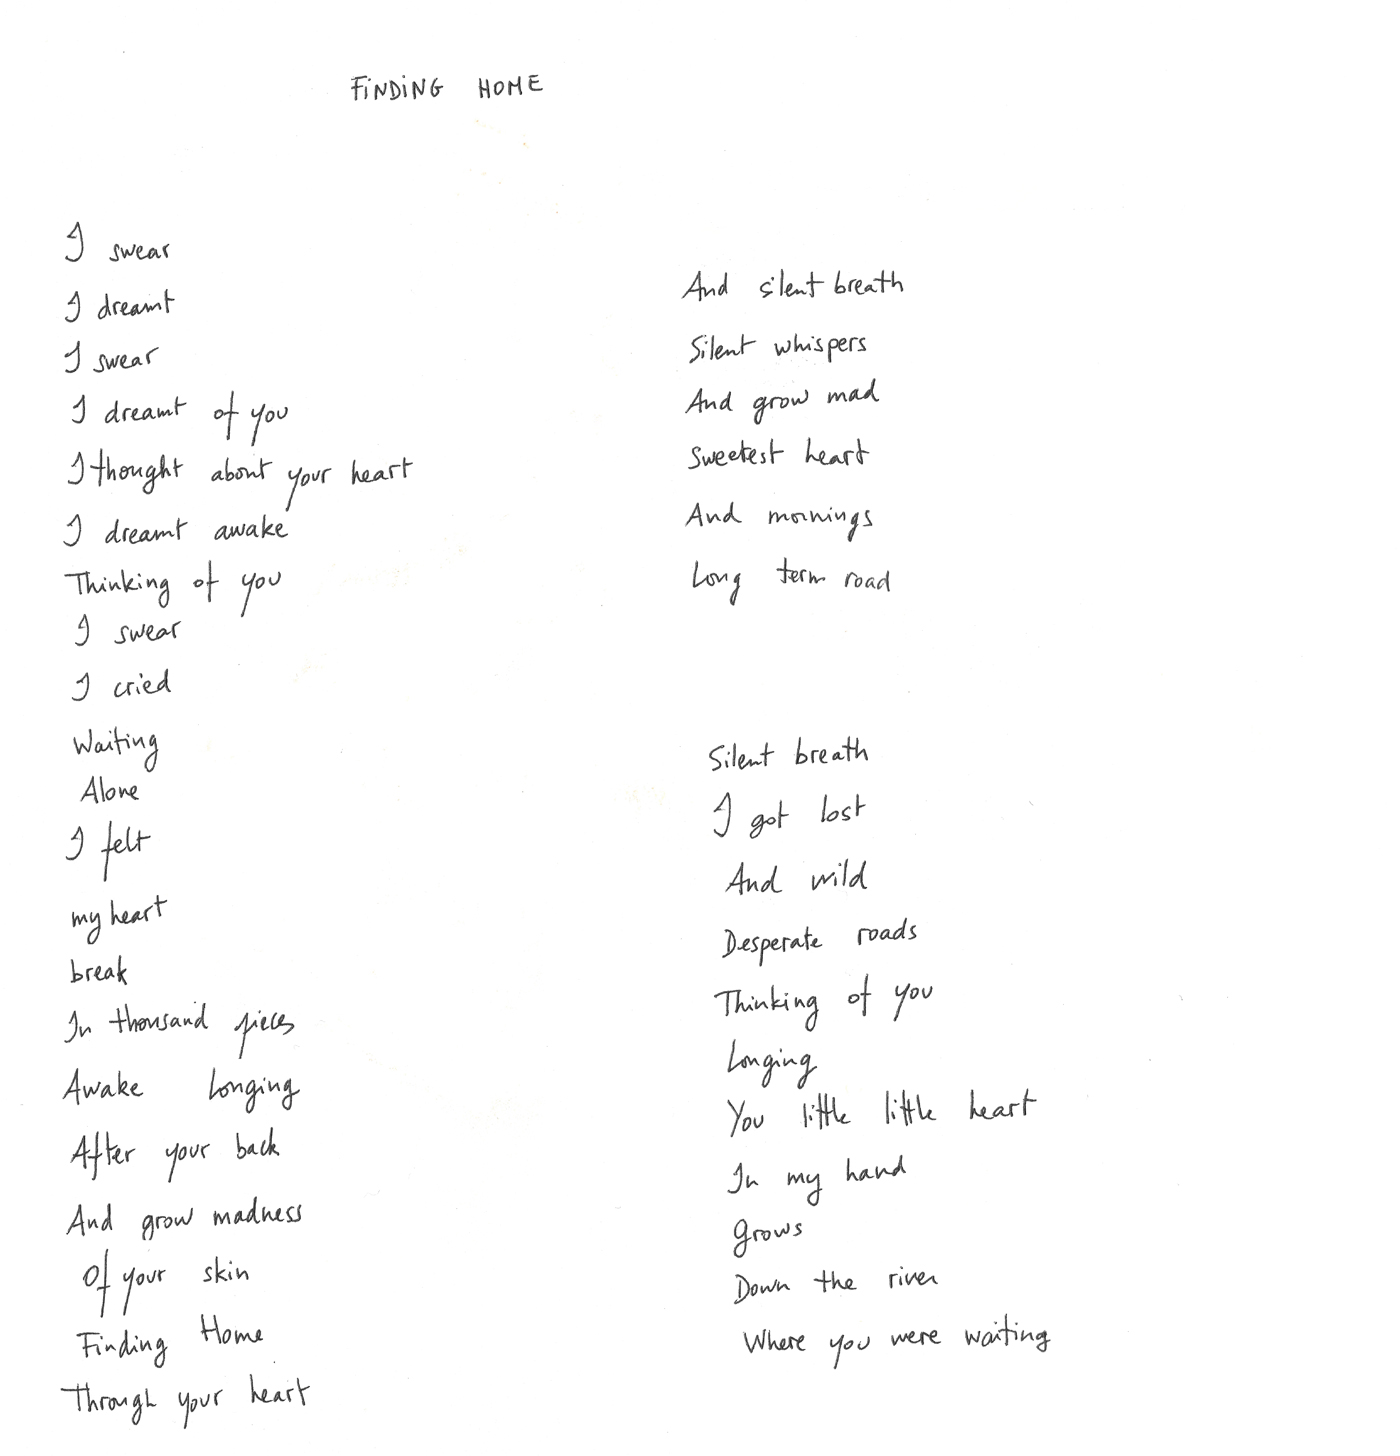 FiNDiNG HOME
I swear
I dreamt
I swear
I dreamt of you
I thought about your heart
I dreamt awake
Thinking of you
I swear
I cried
Waiting
Alone
I felt
my heart
break
In thousand pieces
Awake Longing
After your back
And grow madness
Of your skin
Finding Home
Through your heart
And silent breath
Silent whispers
And grow mad
Sweetest heart
And mornings
Long term road
Silent breath
I got lost
And wild
Desperate roads
Thinking of you
Longing
You little little heart
In my hand
grows
Down the river
Where you were waiting